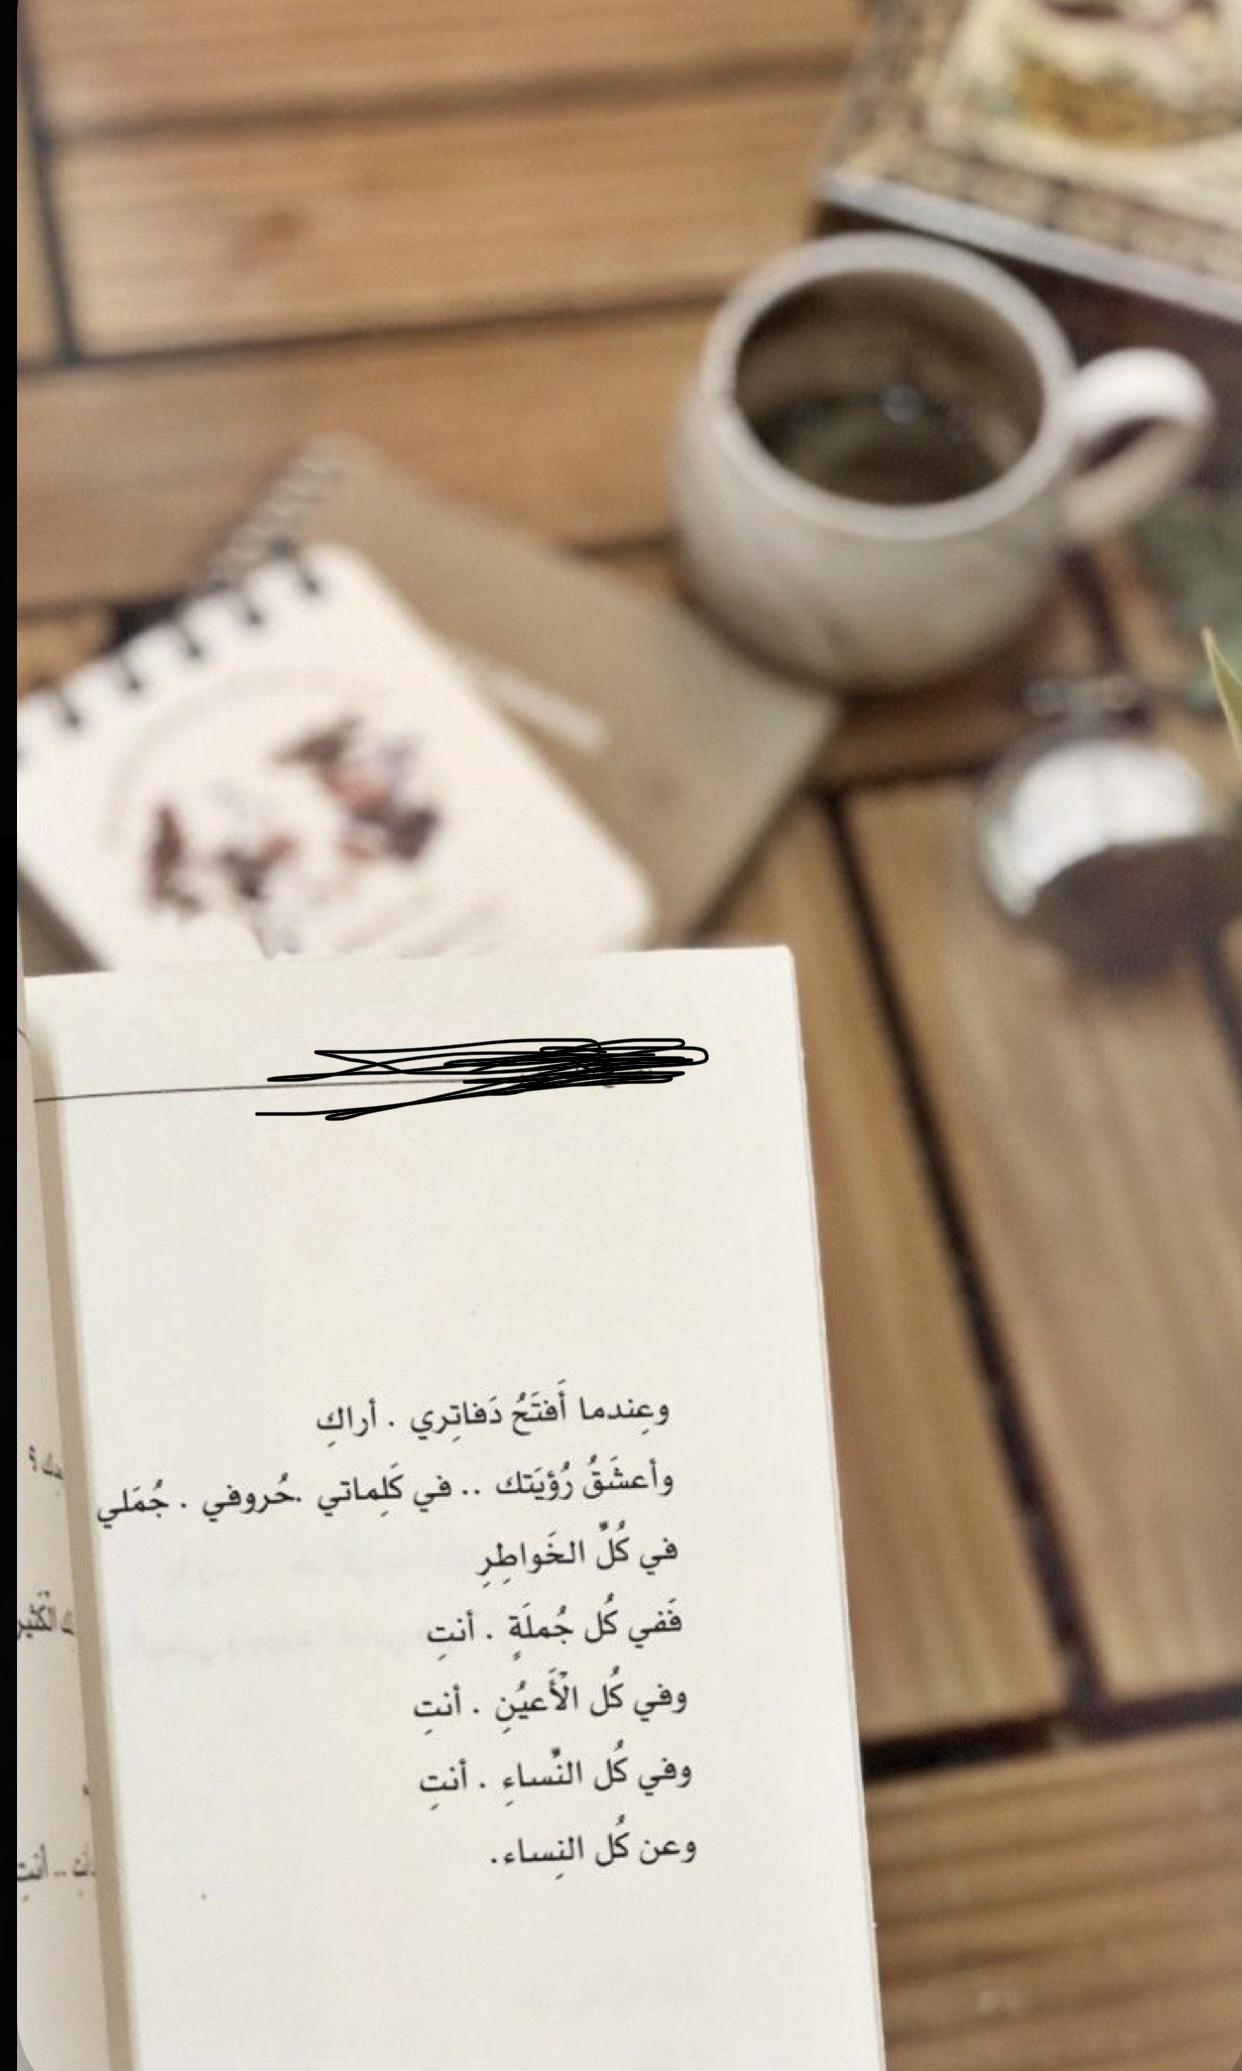 وعِندما أَفتَحُ دَفاتِري . أراكِ
وأعشَقُ رُؤيَتك .. في كَلِماتي .حُروفي . جُمَلي
في كُلِّ الخَواطِرِ
فَفي كُل جُملَةٍ . أنتِ
وفي كُل الْأَعيُنِ . أنتِ
وفي كُل النِّساءِ . أنتِ
وعن كُل النِساء.
الكثير
.. أنتِ